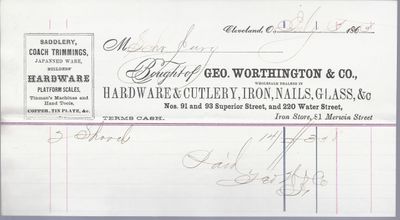 SADDLERY,
COACH TRIMMINGS,
JAPANNED WARE,
BUILDERS'
HARDWARE
PLATFORM SCALES,
Tinman's Machines and
Hand Tools,
COPPER, TIN PLATE, &c.
Cleveland, O. 186
M
Bought of GEO. WORTHINGTON & CO.,
WHOLESALE DEALERS IN
HARDWARE & CUTLERY, IRON, NAILS, GLASS, &c
Nos. 91 and 93 Superior Street, and 220 Water Street,
TERMS CASH. Iron Store, 81 Merwin Street
3 Shovel
Paid
Geo W & Co